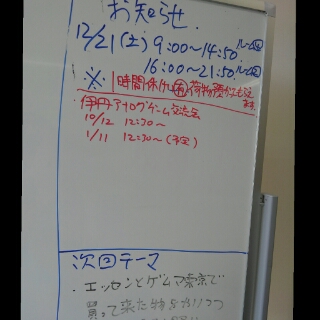 お知らせ
12/21(土) 9:00～14:50
16:00～21:50
※ 1時間休けい 有 荷物
伊丹アナログゲーム交流会
10/12 12:30～
1/11 12:30～(予定)
次回テーマ
・エッセンとゲムマ東京で
買って来た物を